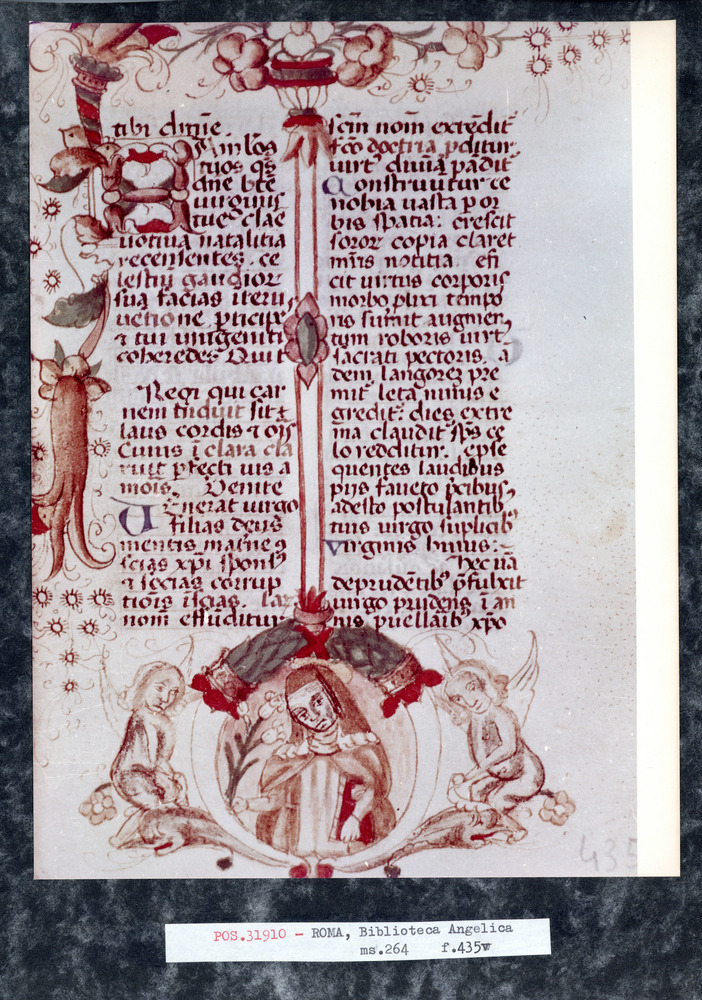 tibi
los
tuos qs
dñe bte
uirginis
tue clāe
uotiua natalitia
recensentes. ce
lestiū gaudior
sua facias
uetione pticipes
tui unigeniti
coheredes Qui t
Regi qui car
nem induit sit
laus cordis
Cuius ī clara cla
ruit pfecti uis a
mois. Venite
enerat uirgo
filias deus
mentis
xpi spons
socias corrup
tiois
nom effūditur
nom extēdit
doctria
uirt diuīa pādit
Construūtur ce
nobia uasta p or
bis spatia: crescit
soror copia claret
notitia. efi
cit uirtus corporis
morbo plixi tempo
ris sumit augmen
tum roboris uirt
sacrati pectoris. a
dem langores pre
mit leta minus e
gredit: dies extre
ma claudit sps ce
lo redditur. epse
quentes laudibus
piis faueto pcibus,
adesto postulantib
tuis uirgo suplicib
Virginis hinus:
Hec uā
deprudētib pfulxit
uirgo prudens ī an
nis puellaib xpo
435
POS.31910 - ROMA, Biblioteca Angelica
ms.264 f.435v